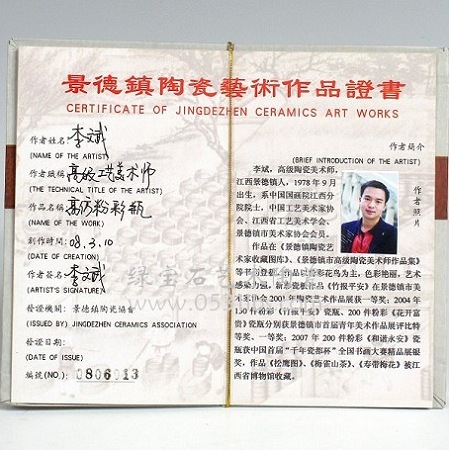 景德鎮陶瓷藝術作品證書
CERTIFICATE OF JINGDEZHEN CERAMICS ART WORKS
作者姓名: 李斌
(NAME OF THE ARTIST)
作者職稱: 高級工艺美术师
(THE TECHNICAL TITLE OF THE ARTIST)
作品名稱: 高方粉彩瓶
(NAME OF THE WORK)
創作時間: 08.3.10
(DATE OF CREATION)
作者簽名: 李斌
(ARTIST'S SIGNATURE)
發證機關: 景德鎮陶瓷協會
(ISSUED BY) JINGDEZHEN CERAMICS ASSOCIATION
發證日期:
(DATE OF ISSUE)
編號(NO.): 0806013
作者簡介
(BRIEF INTRODUCTION OF THE ARTIST)
李斌，高级陶瓷美术师，
江西景德镇人，1978年9月
出生，系中国国画院江西分
院院士，中国工艺美术家协
会、江西省工艺美术学会、
景德镇市美术家协会会员。
作品在《景德镇陶瓷艺
术家收藏图库》、《景德镇市高级陶瓷美术师作品集》
等书刊登载，作品以粉彩花鸟为主，色彩艳丽，艺术
感染力强。新彩瓷板《竹报平安》在景德镇市美
术家协会2001年陶瓷艺术作品展获一等奖；2004年
150件粉彩《竹报平安》瓷瓶、200件粉彩《花开富
贵》瓷瓶分别获景德镇市首届青年美术作品展评比特
等奖、一等奖；2007年200件粉彩《和谐永安》瓷
瓶获中国首届“千年瓷都杯”全国书画大赛精品展银
奖，作品《松鹰图》、《梅雀山茶》、《寿带梅花》被江
西省博物馆收藏。
作者照片